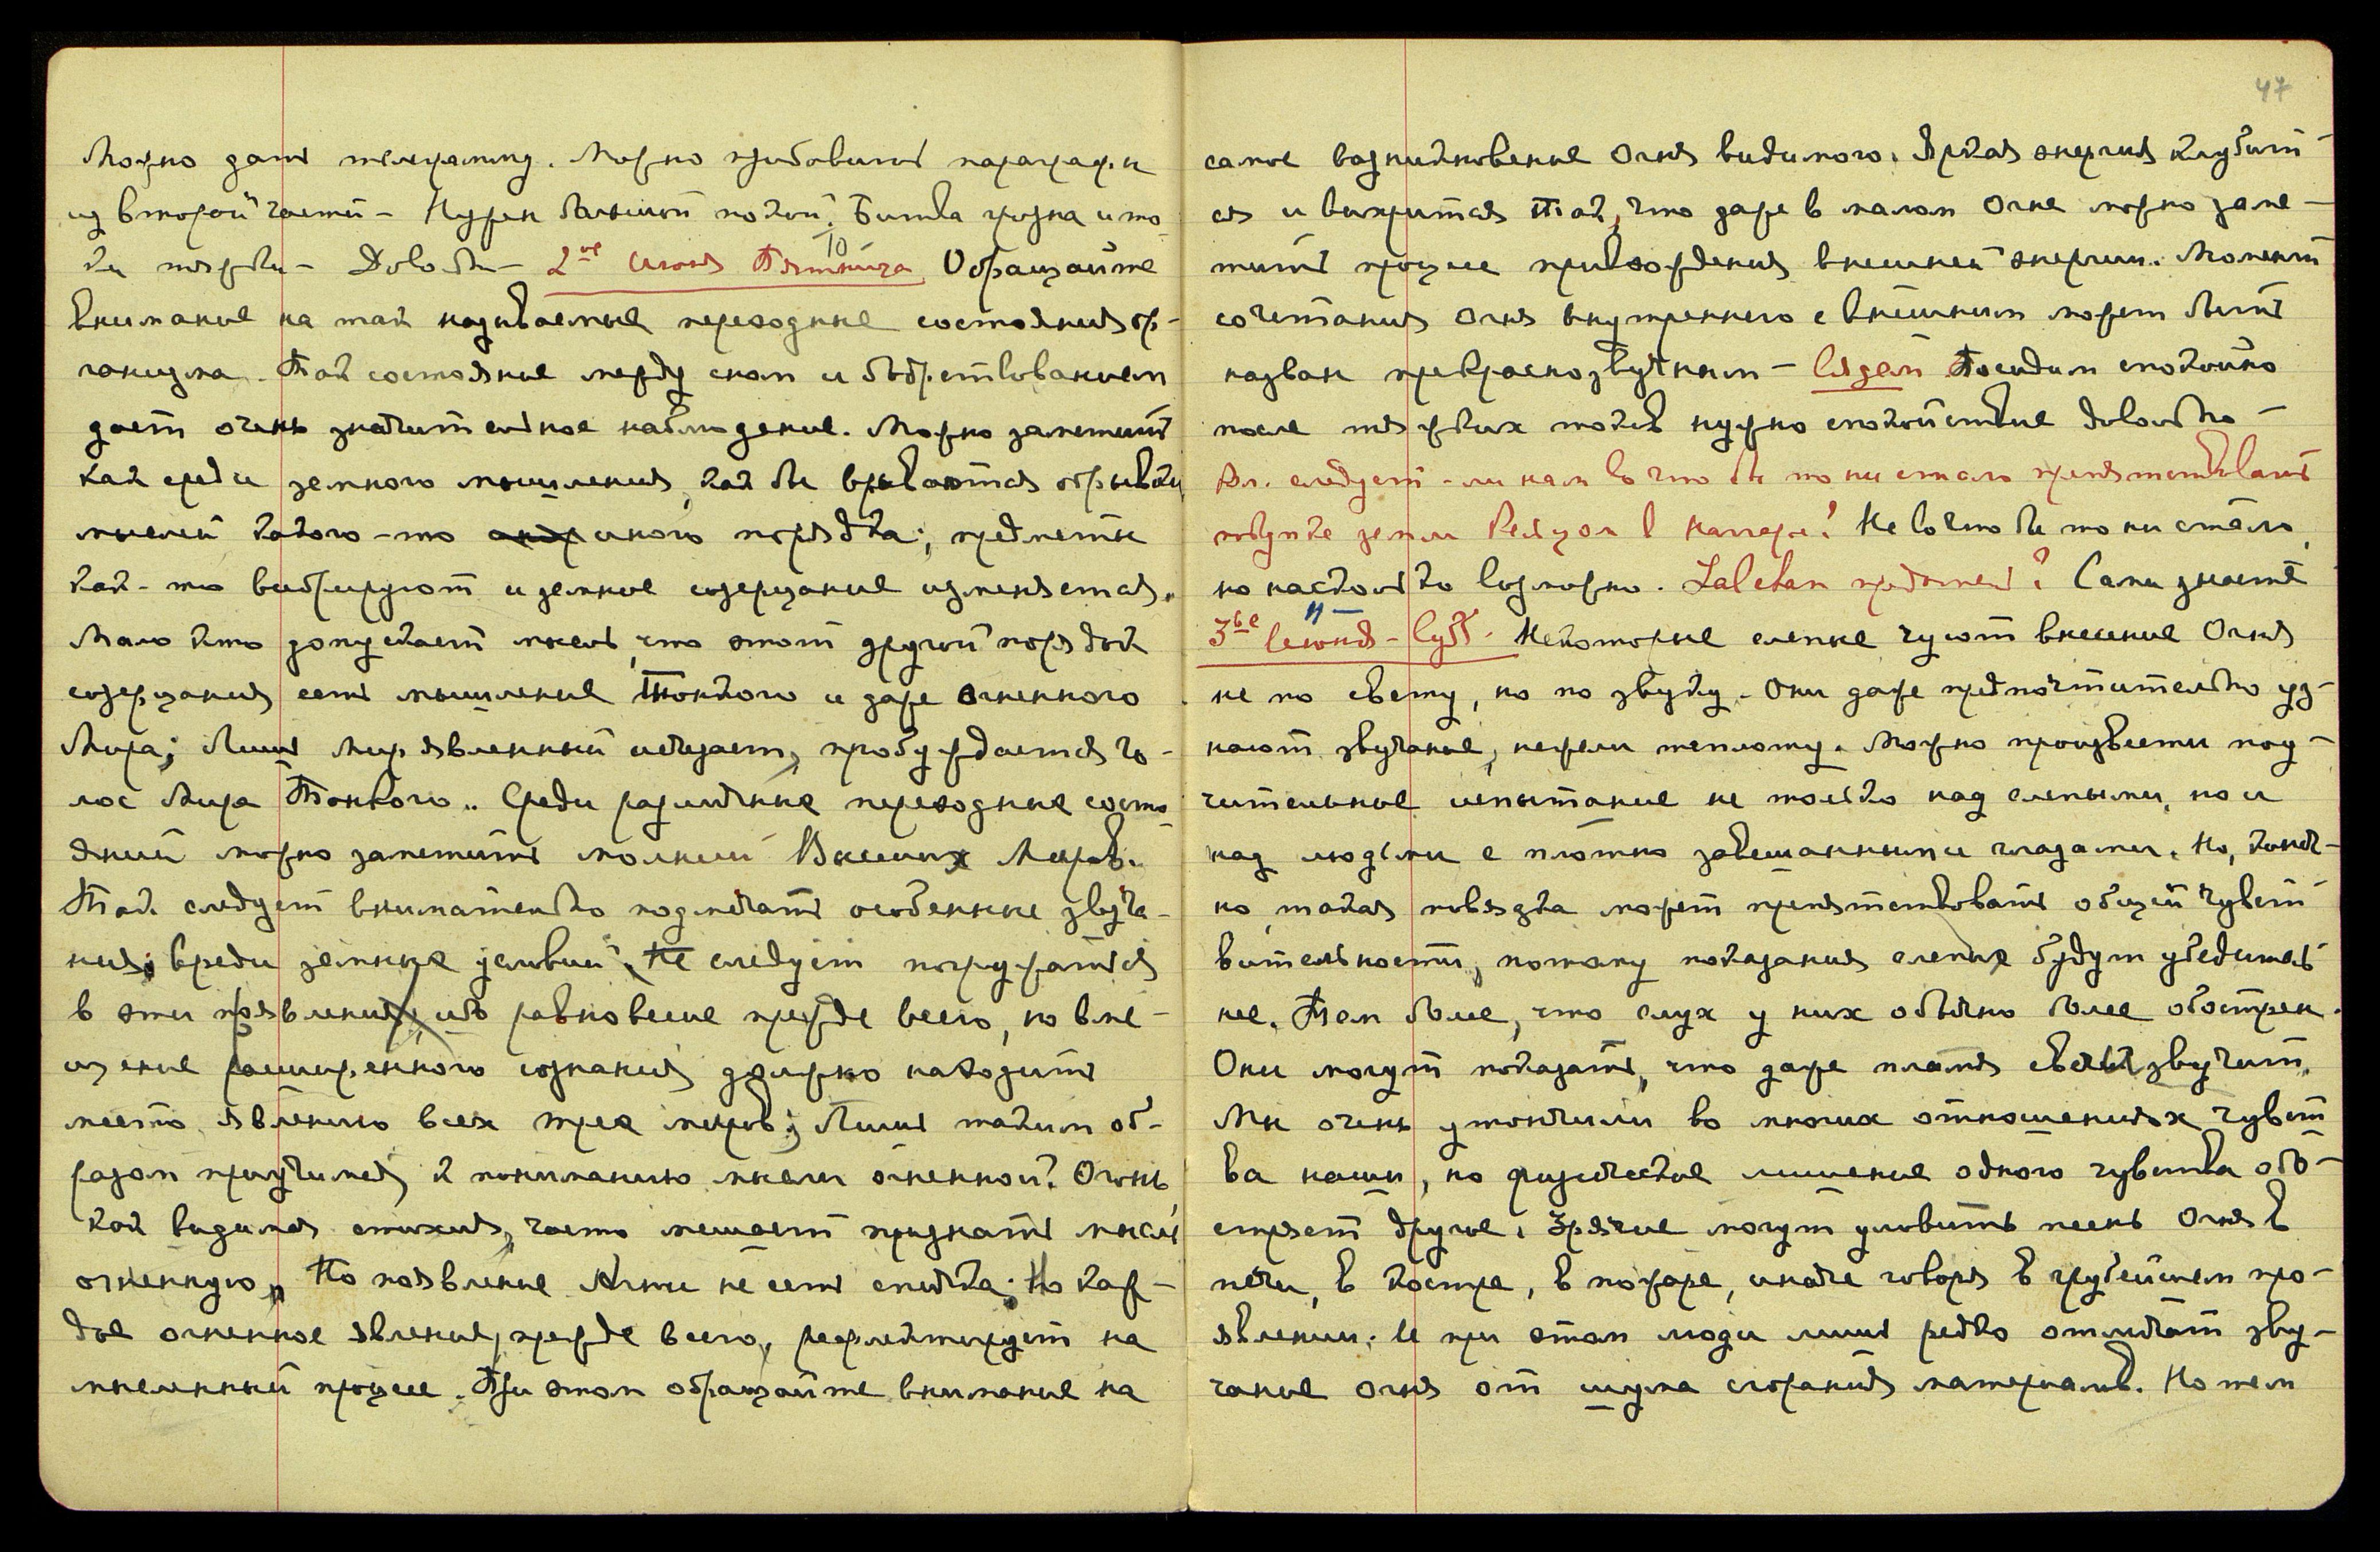 Можно дать телеграмму. Можно прибавить параграфы
из второй части – Нужен большой покой. Битва грозна и то-
ки тяжки – Довольно – 2ое Июня Пятница 10 Обращайте
внимание на так называемые переходные состояния ор-
ганизма. Так состояние между сном и бодрствованием
дает очень значительное наблюдение. Можно заметить
как среди земного мышления, как бы врываются обрывки
мыслей какого-то иного порядка; предметы
как-то вибрируют и земное созерцание изменяется.
Мало кто допускает мысль, что этот другой порядок
созерцания есть мышление Тонкого и даже Огненного
Мира; Лишь мир явленный исчезает, пробуждается го-
лос Мира Тонкого.. Среди различных переходных состо
яний можно заметить молний Высших Миров.
Так следует внимательно подмечать особенные звуча-
ния; среди земных условий. Не следует погружаться
в эти проявления, ибо равновесие прежде всего, но вме-
щение расширенного сознания должно находить
место явлению всех трех миров; Лишь таким об-
разом приучимся к пониманию мысли огненной. Огонь
как видимая стихия, часто мешает признать мысль
огненную, Но появление Агни не есть спичка; Но каж-
дое огненное явление, прежде всего, рефлектирует на
мысленный процесс. При этом обращайте внимание на
47
самое возникновение Огня видимого. Яркая энергия клубит
ся и вихрится так, что даже в малом Огне можно заме-
тить процесс привхождения внешней энергии. Момент
сочетания Огня внутреннего с внешним может быть
назван прекраснозвучным – Сядем Посидим спокойно
после тяжких токов нужно спокойствие довольно –
Вл. следует-ли нам во что бы то ни стало препятствовать
покупке земли в Наггаре? Не во что бы то ни стало,
но насколько возможно. предатель? Сами знаете
3ье Июня – Суб. 11 Некоторые слепые чуют внешние Огни
не по свету, но по звуку. Они даже предпочтительно уз-
нают звучание, нежели теплоту. Можно произвести поу-
чительное испытание не только над слепыми, но и
над людьми с плотно завешанными глазами. Но, конеч-
но такая повязка может препятствовать общей чувст
вительности, потому показания слепых будут убедитель
нее. Тем более, что слух у них обычно более обострен.
Они могут показать, что даже пламя свечи звучит.
Мы очень утончили во многих отношениях чувст
ва наши, но физическое лишение одного чувства обо-
стряет другое. Зрячие могут уловить песнь Огня в
печи, в костре, в пожаре, иначе говоря в грубейшем про-
явлении. И при этом люди лишь редко отличат зву-
чание огня от шума сгорания материалов. Но тем